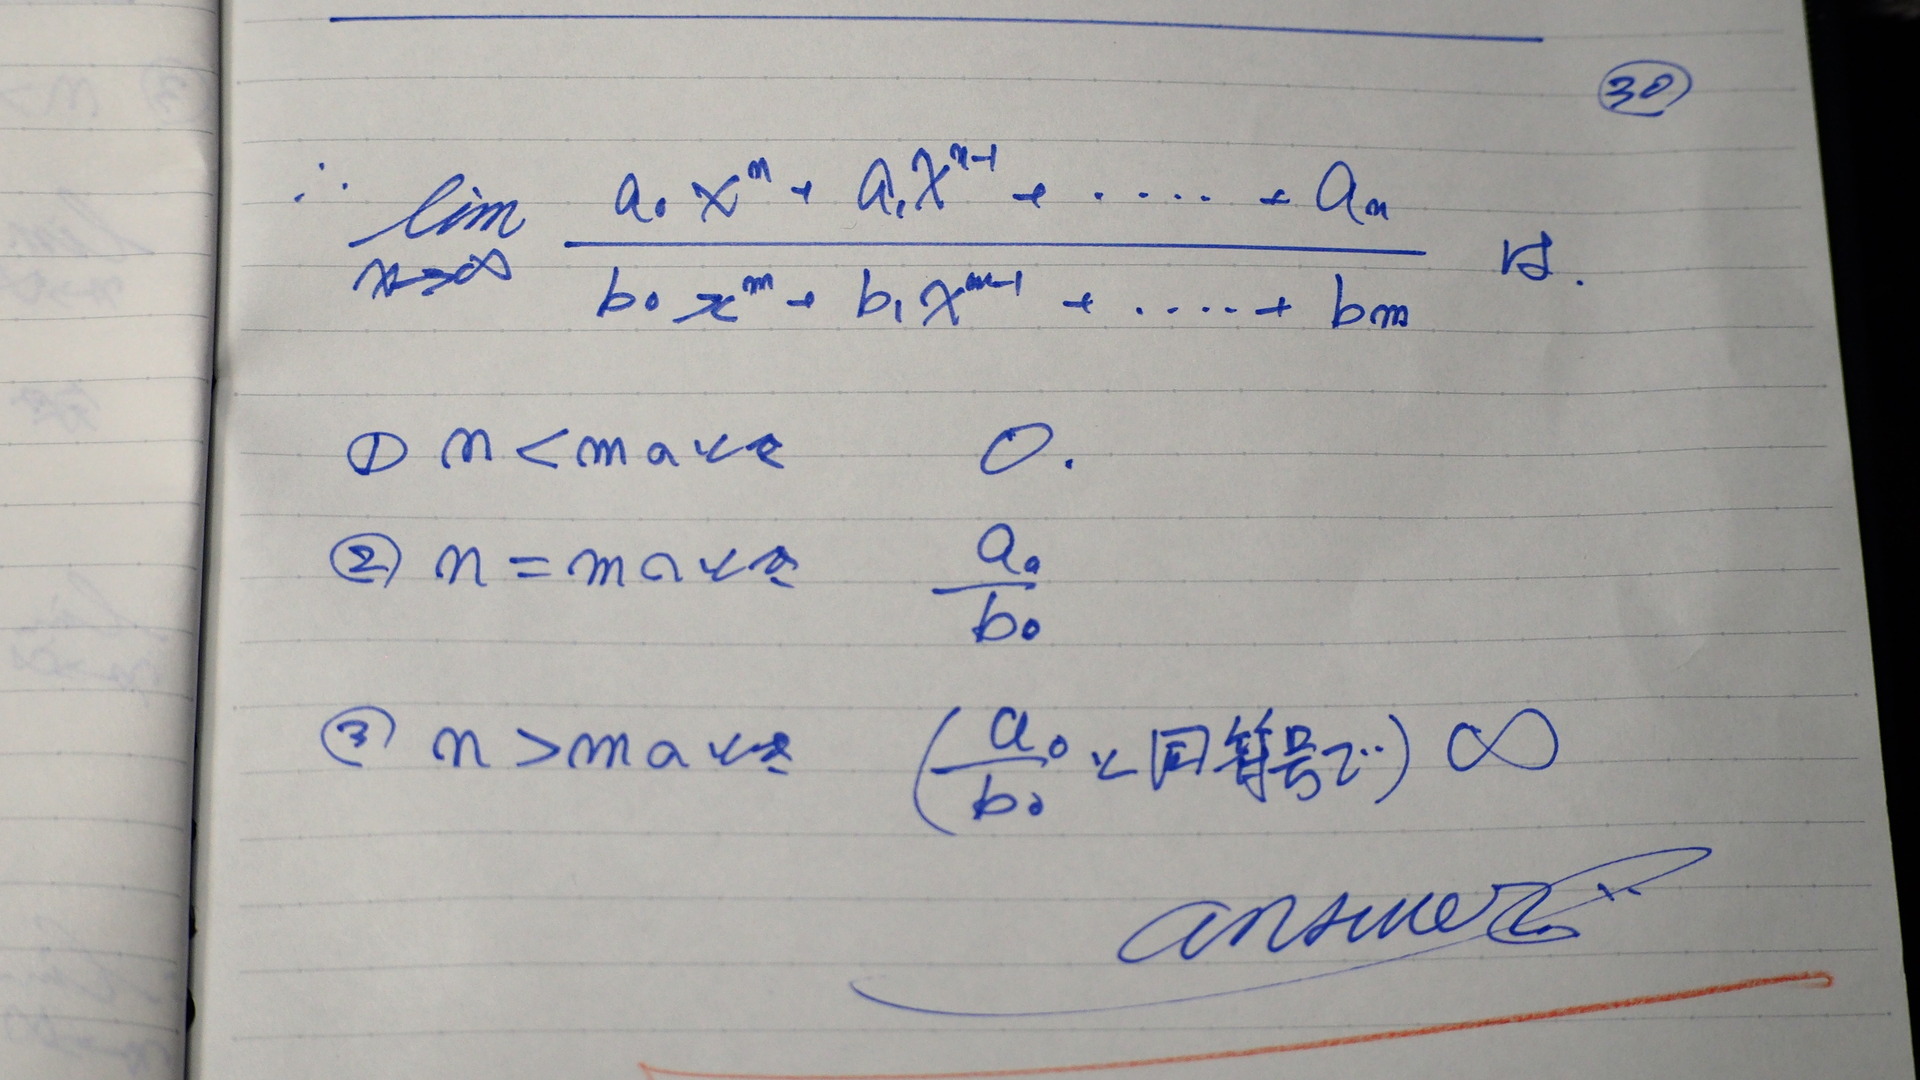 ㉚
∴ lim x→∞ (a₀xⁿ + a₁xⁿ⁻¹ + ..... + aₙ) / (b₀xᵐ + b₁xᵐ⁻¹ + ..... + bₘ) は.
① n < m のとき 0.
② n = m のとき a₀/b₀
③ n > m のとき (a₀/b₀ と同符号で) ∞
answer